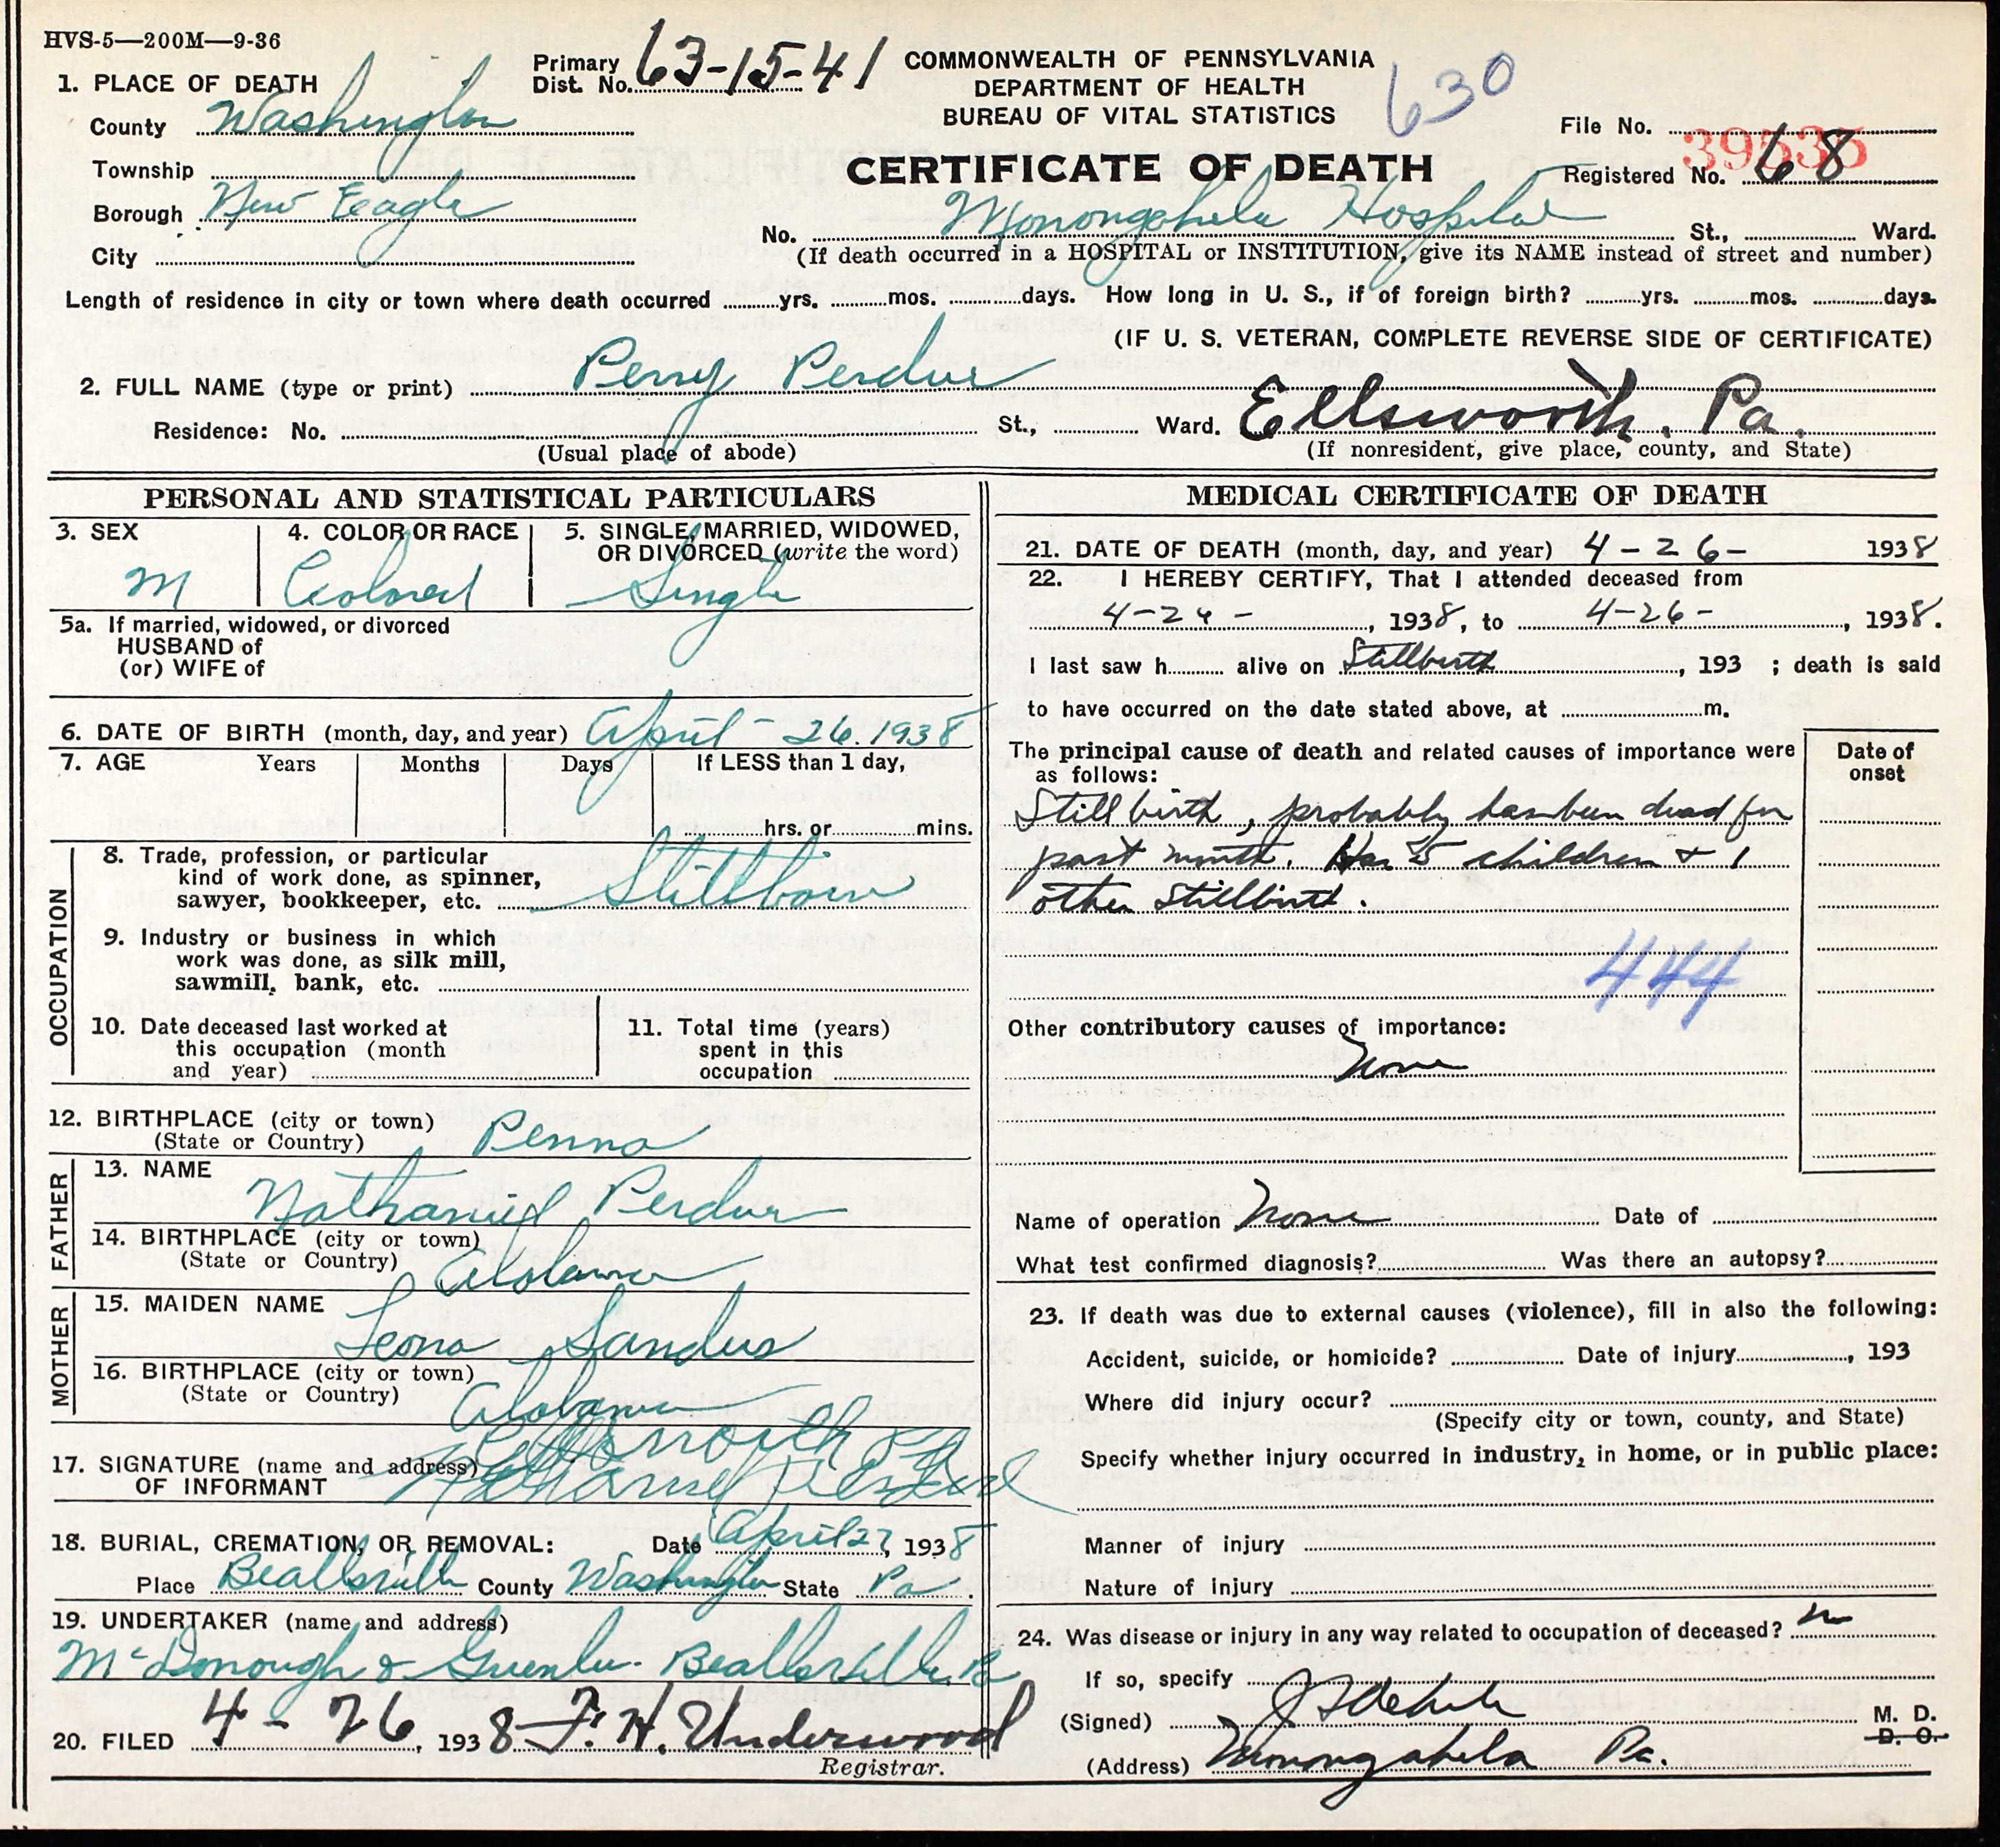 HVS-5—200M—9-36
1. PLACE OF DEATH
Primary Dist. No. 63-15-41
COMMONWEALTH OF PENNSYLVANIA
DEPARTMENT OF HEALTH
BUREAU OF VITAL STATISTICS
630
County Washington
File No. 39535
CERTIFICATE OF DEATH
Township
Registered No. 68
Borough New Eagle
No. Monongahela Hospital St., Ward.
City
(If death occurred in a HOSPITAL or INSTITUTION, give its NAME instead of street and number)
Length of residence in city or town where death occurred yrs. mos. days. How long in U. S., if of foreign birth? yrs. mos. days.
(IF U. S. VETERAN, COMPLETE REVERSE SIDE OF CERTIFICATE)
2. FULL NAME (type or print) Perry Perdue
Residence: No. St., Ward. Ellsworth, Pa.
(Usual place of abode) (If nonresident, give place, county, and State)
PERSONAL AND STATISTICAL PARTICULARS
3. SEX
4. COLOR OR RACE
5. SINGLE, MARRIED, WIDOWED, OR DIVORCED (write the word)
M Colored Single
5a. If married, widowed, or divorced
HUSBAND of
(or) WIFE of
6. DATE OF BIRTH (month, day, and year) April - 26. 1938
7. AGE Years Months Days If LESS than 1 day,
hrs. or mins.
OCCUPATION
8. Trade, profession, or particular
kind of work done, as spinner,
sawyer, bookkeeper, etc. Stillborn
9. Industry or business in which
work was done, as silk mill,
sawmill, bank, etc.
10. Date deceased last worked at
this occupation (month
and year)
11. Total time (years)
spent in this
occupation
12. BIRTHPLACE (city or town)
(State or Country) Penna
FATHER
13. NAME
Nathaniel Perdue
14. BIRTHPLACE (city or town)
(State or Country) Alabama
MOTHER
15. MAIDEN NAME
Leona Sandus
16. BIRTHPLACE (city or town)
(State or Country)
Alabama
Ellsworth Pa
17. SIGNATURE (name and address)
OF INFORMANT Nathaniel Perdue
18. BURIAL, CREMATION, OR REMOVAL: Date April 27, 1938
Place Beallsville County Washington State Pa.
19. UNDERTAKER (name and address)
McDonough & Guenlu. Beallsville. Pa
20. FILED 4-26, 1938 F. H. Underwood
Registrar.
MEDICAL CERTIFICATE OF DEATH
21. DATE OF DEATH (month, day, and year) 4-26- 1938
22. I HEREBY CERTIFY, That I attended deceased from
4-26-, 1938, to 4-26-, 1938.
I last saw h alive on Stillbirth, 193 ; death is said
to have occurred on the date stated above, at m.
The principal cause of death and related causes of importance were
as follows:
Date of
onset
Stillbirth, probably has been dead for
past month. Has 5 children & 1
other Stillbirth.
444
Other contributory causes of importance:
None
Name of operation None Date of
What test confirmed diagnosis? Was there an autopsy?
23. If death was due to external causes (violence), fill in also the following:
Accident, suicide, or homicide? Date of injury, 193
Where did injury occur?
(Specify city or town, county, and State)
Specify whether injury occurred in industry, in home, or in public place:
Manner of injury
Nature of injury
24. Was disease or injury in any way related to occupation of deceased? no
If so, specify
(Signed) M. D.
D. O.
(Address) Monongahela Pa.